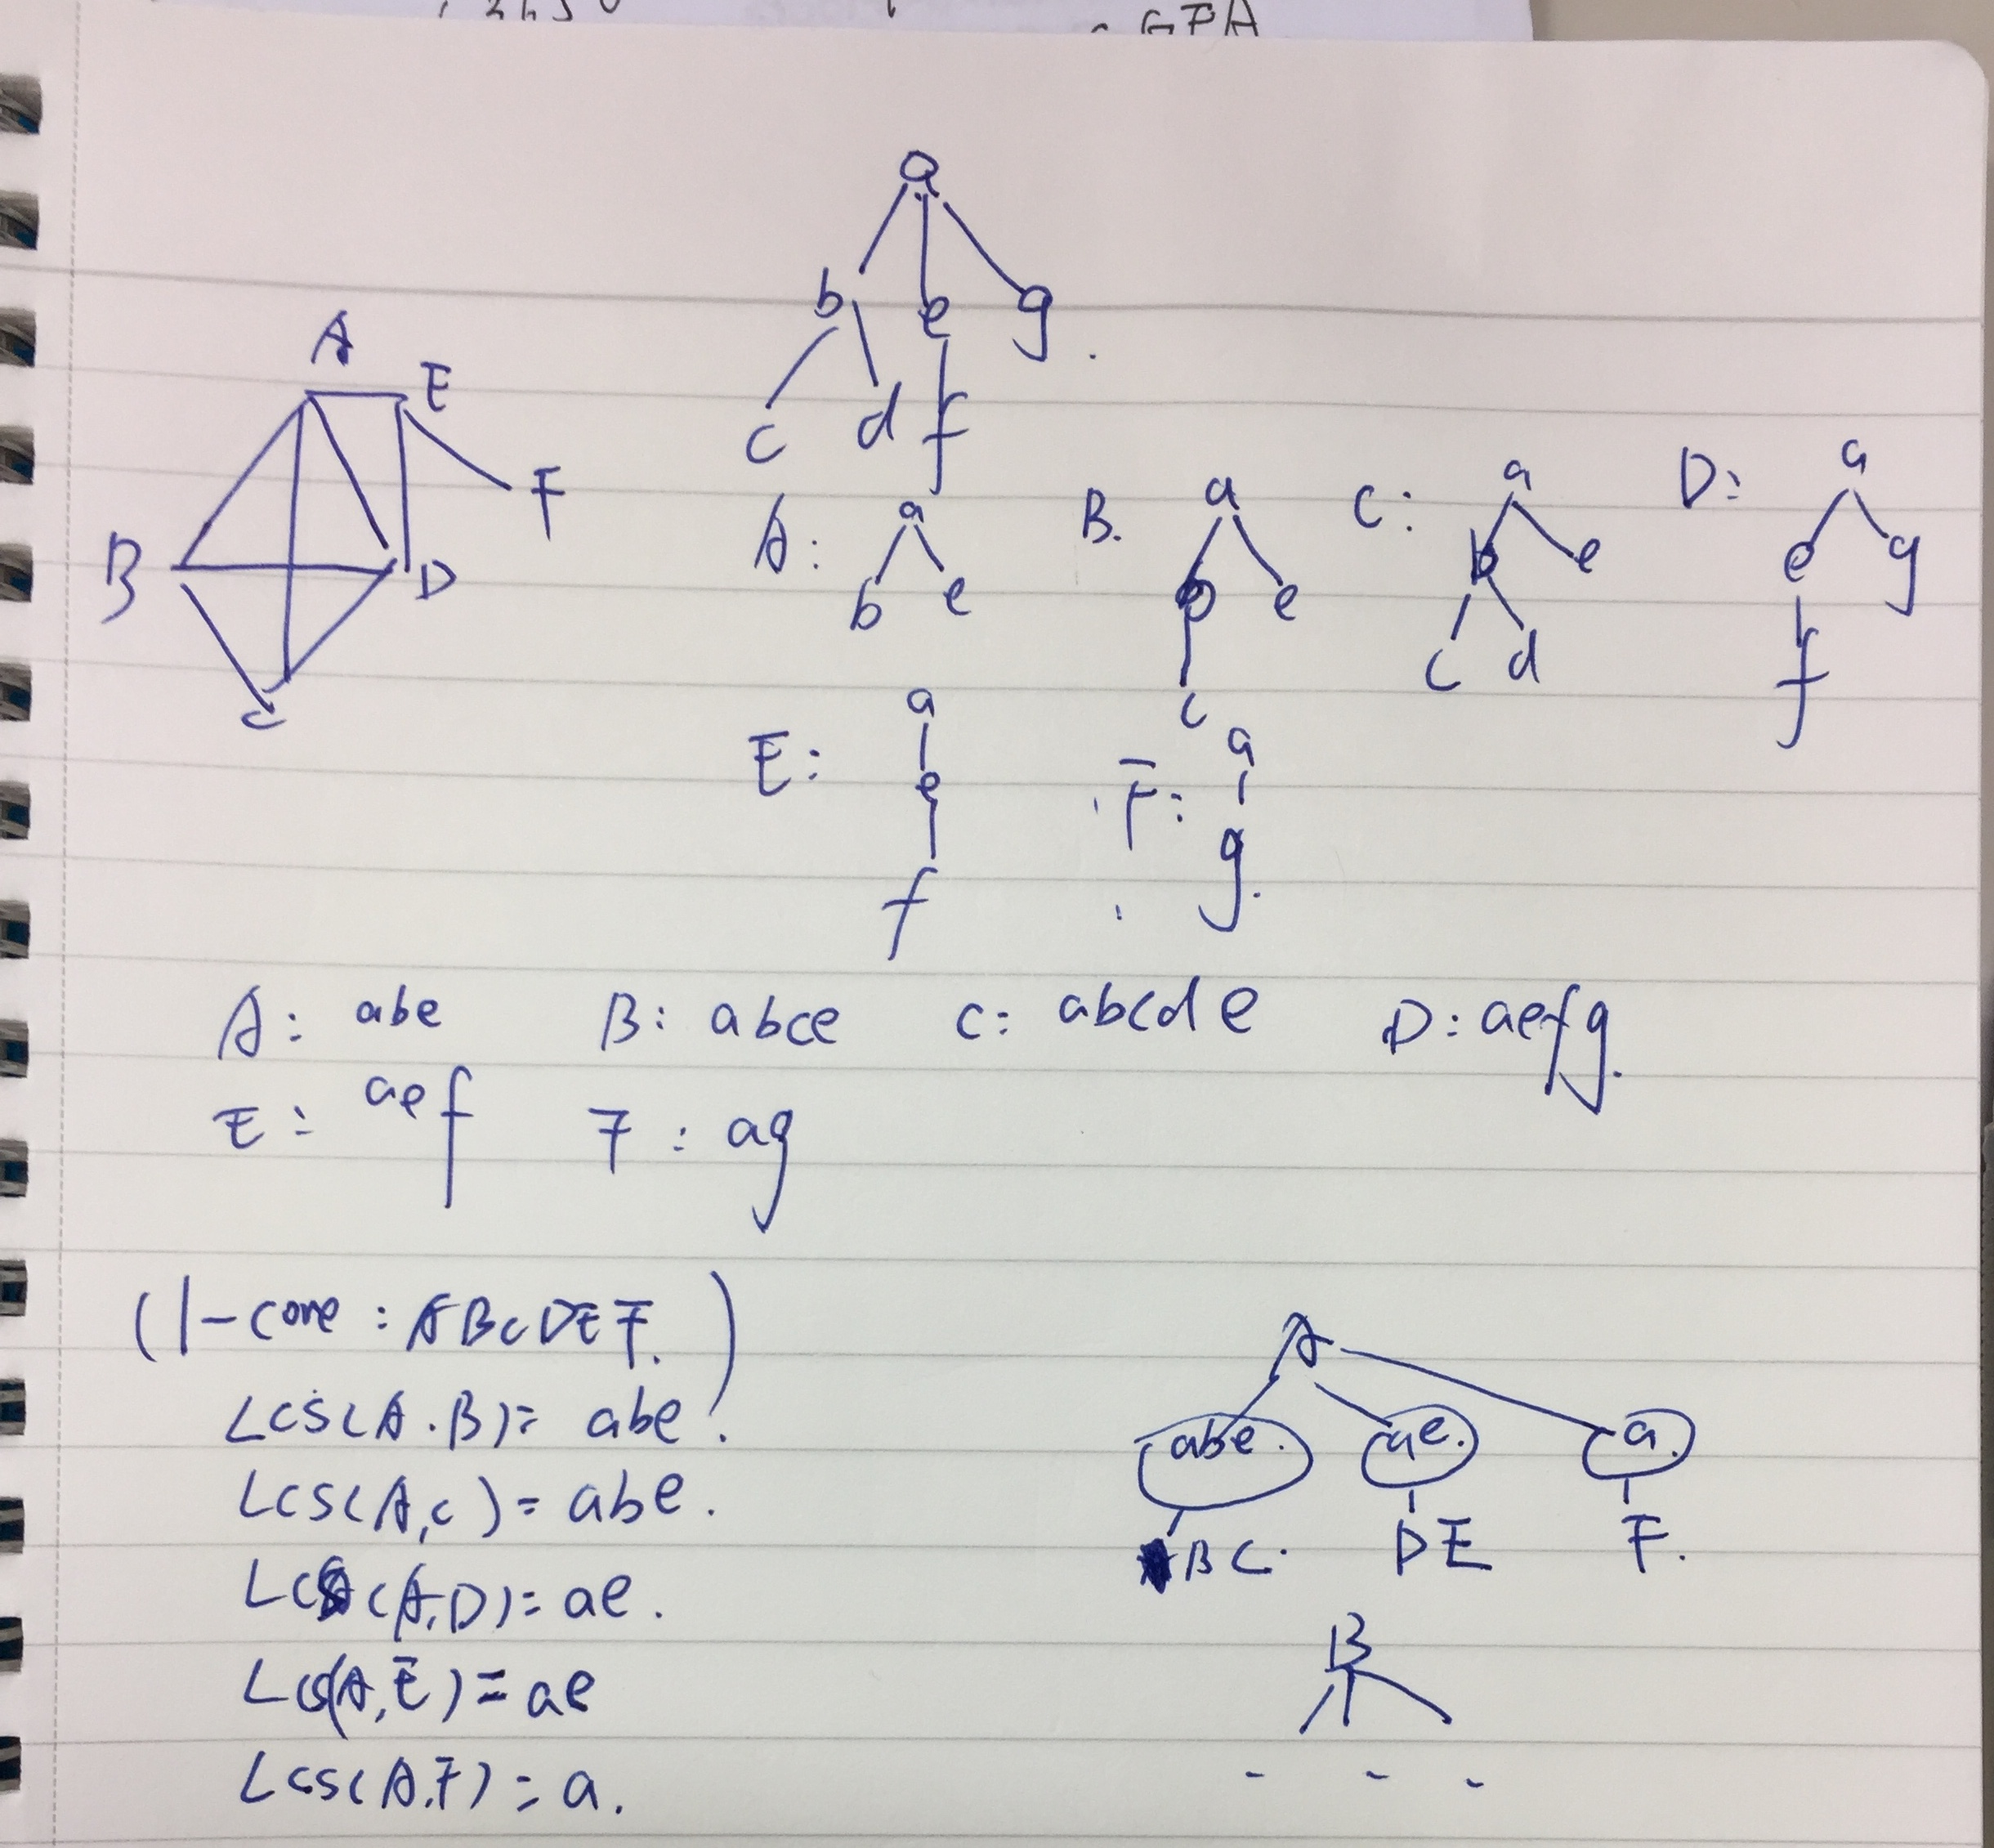 GPA
a
b e g.
c d f
A
E
F
B
D
C
A: a
b e
B. a
b e
c
C: a
b e
c d
D: a
e g
f
E: a
e
f
F: a
g.
A: abe B: abce C: abcde D: aefg.
E: aef F: ag
(1-core: ABCDEF.)
LCS(A.B)= abe.
LCS(A,C)= abe.
LCS(A,D)= ae.
LCS(A,E)= ae
LCS(A,F)= a.
A
abe. ae. a.
BC. DE F.
B
- - -